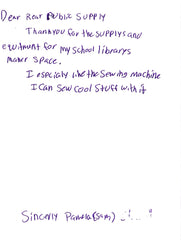 Dear Rear Public SUPPLY
Thankyou for the supplys and
equitment for my school librarys
maker space.
I espcialy like the Sewing Machine
I Can Sew Cool Stuff with it
Sincerly Pamela (Sam)